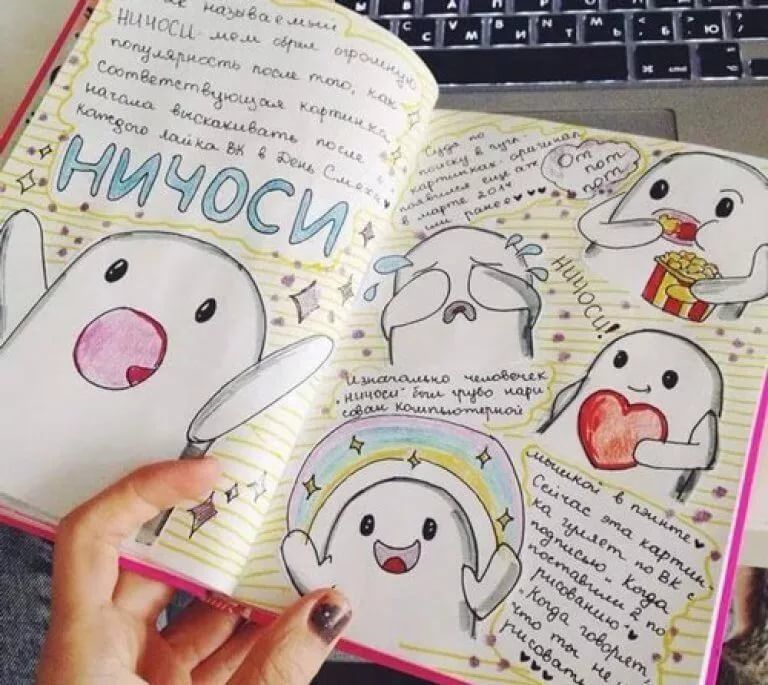 называемый
НИЧОСИ - мем обрел огромную
популярность после того, как
соответствующая картинка
начала выскакивать после
каждого лайка ВК в День Смеха.
НИЧОСИ
Судя по
поиску в гугл-
картинках, оригинал
появился еще аж
в марте 2014
или ранее
От
пот
пот
НИЧОСИ!
Изначально человечек
"ничоси" был грубо нари
сован компьютерной
мышкой в пэинте
Сейчас эта картин-
ка гуляет по ВК с
подписью "Когда
поставили 2 по
рисованию"
"Когда говорят,
что ты не
рисовать
C V B N M
С М И Т Ь Б Ю
⌘ alt